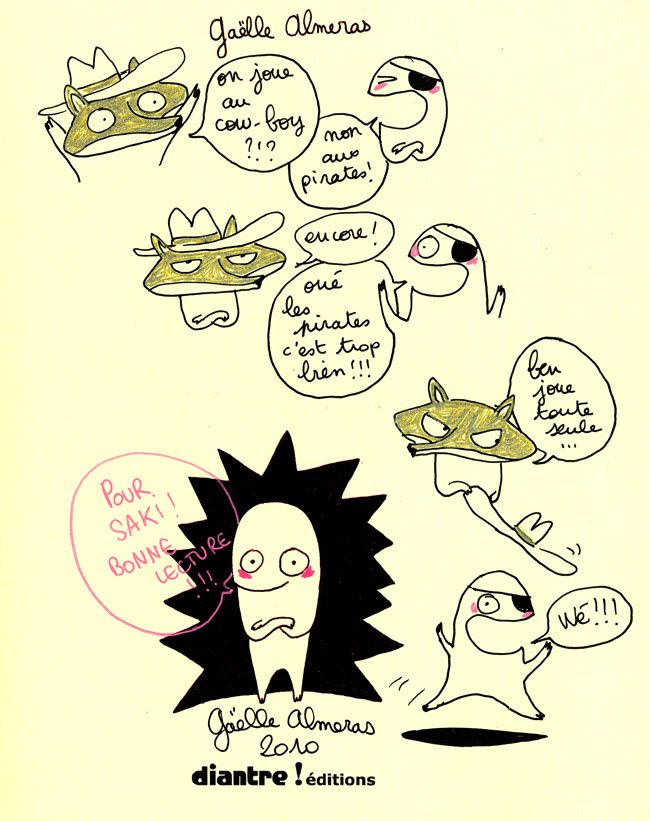 Gaëlle Almeras
on joue
au
cow-boy
?!?
non
aux
pirates!
encore!
oué
les
pirates
c'est trop
bien!!!
ben
joue
toute
seule
...
POUR
SAKI!
BONNE
LECTURE
!!!
Wé!!!
Gaëlle Almeras
2010
diantre ! éditions